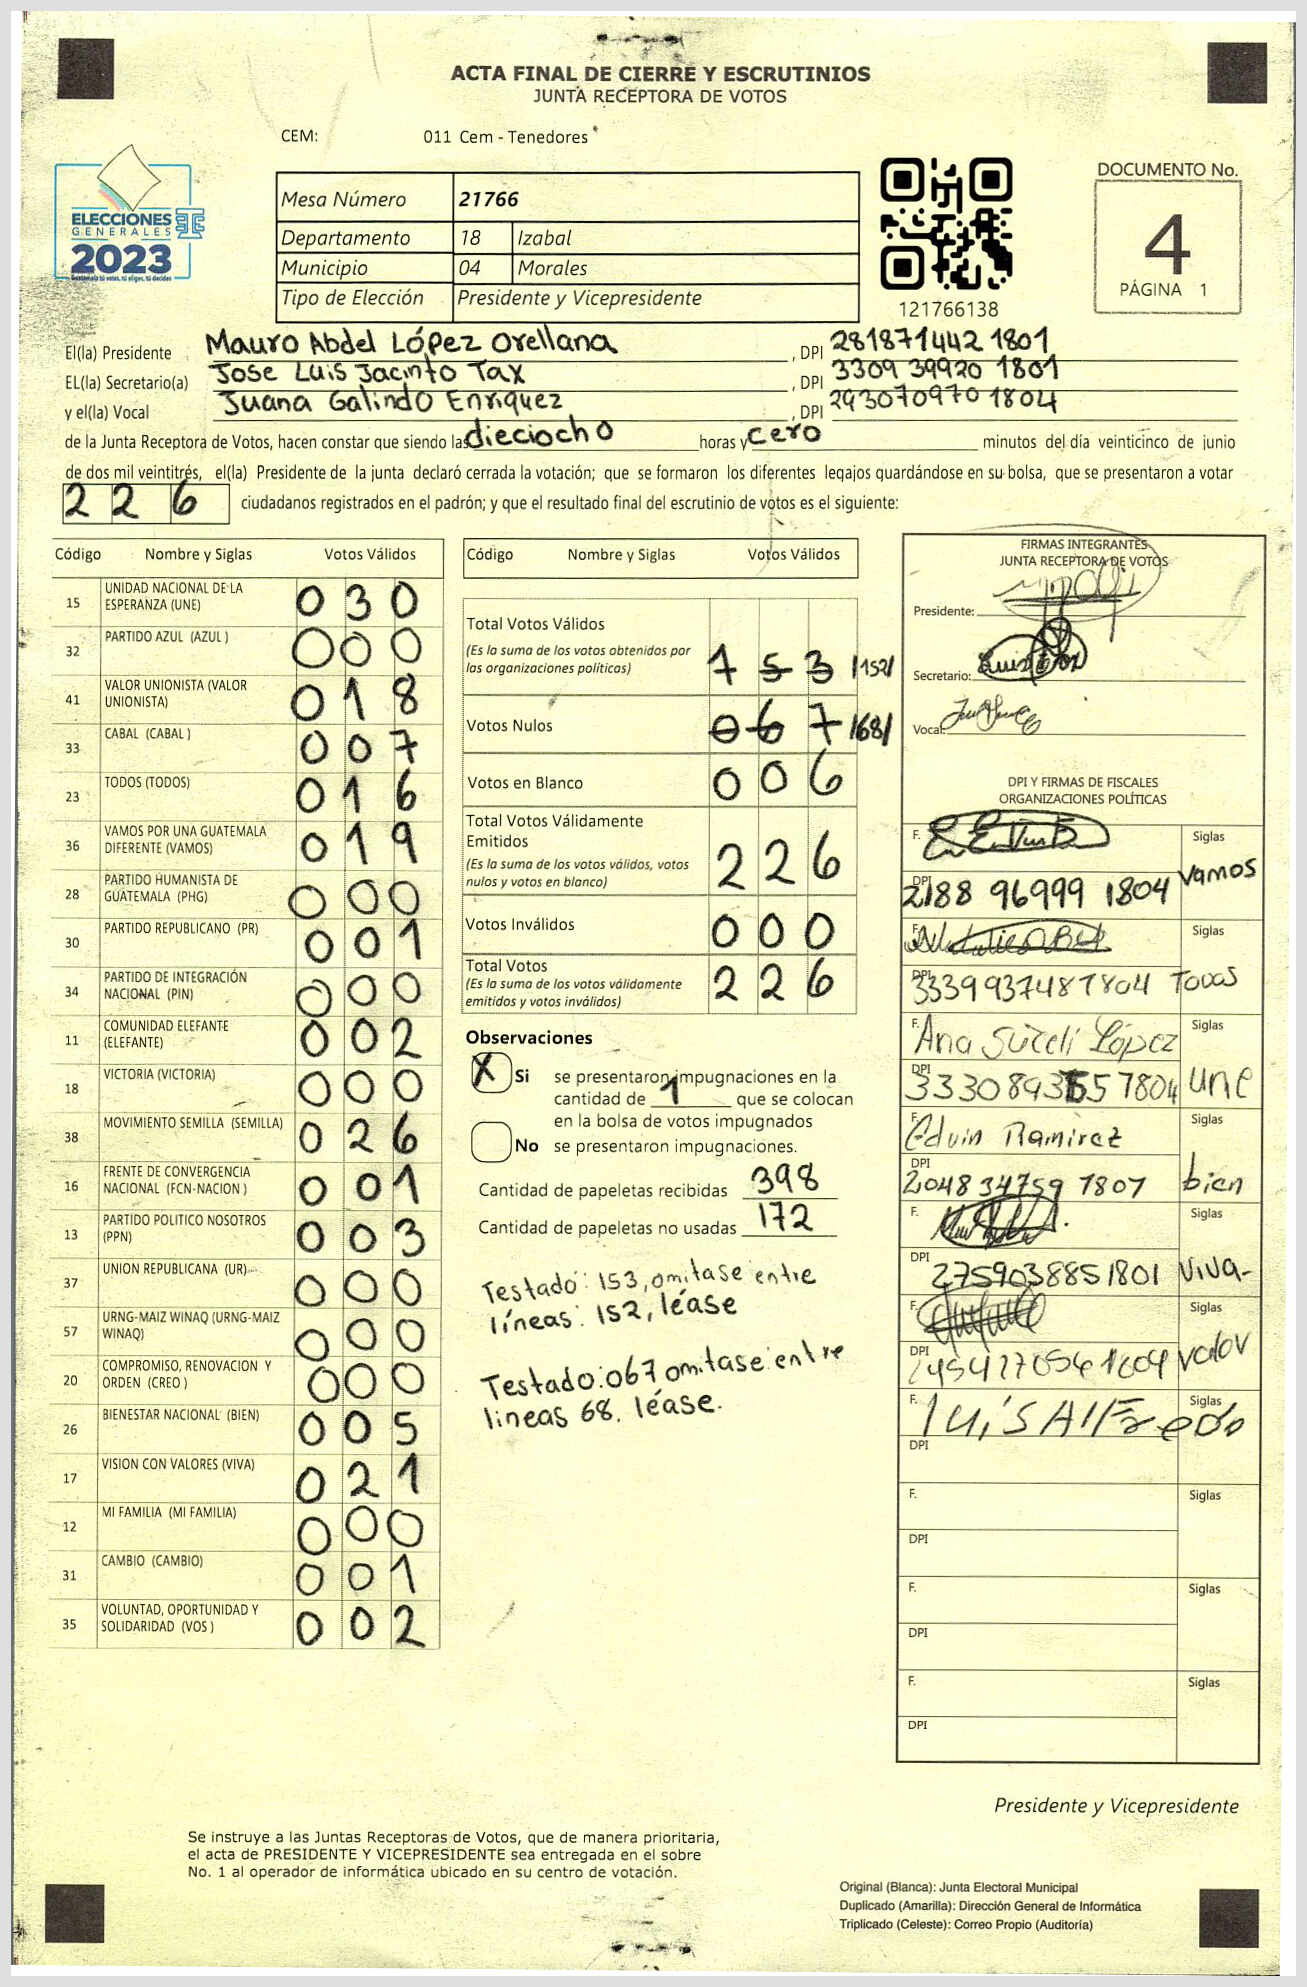 ACTA FINAL DE CIERRE Y ESCRUTINIOS
JUNTA RECEPTORA DE VOTOS
CEM: 011 Cem - Tenedores
ELECCIONES
GENERALES
2023
Guatemala tú votas, tú eliges, tú decides
Mesa Número 21766
Departamento 18 Izabal
Municipio 04 Morales
Tipo de Elección Presidente y Vicepresidente
121766138
DOCUMENTO No.
4
PÁGINA 1
El(la) Presidente Mauro Abdel López Orellana, DPI 281871442 1801
EL(la) Secretario(a) Jose Luis Jacinto Tax, DPI 3309 39920 1801
y el(la) Vocal Juana Galindo Enriquez, DPI 293070970 1804
de la Junta Receptora de Votos, hacen constar que siendo las dieciocho horas y cero minutos del día veinticinco de junio
de dos mil veintitrés, el(la) Presidente de la junta declaró cerrada la votación; que se formaron los diferentes legajos quardándose en su bolsa, que se presentaron a votar
226 ciudadanos registrados en el padrón; y que el resultado final del escrutinio de votos es el siguiente:
Código Nombre y Siglas Votos Válidos
15 UNIDAD NACIONAL DE LA ESPERANZA (UNE) 030
32 PARTIDO AZUL (AZUL ) 000
41 VALOR UNIONISTA (VALOR UNIONISTA) 018
33 CABAL (CABAL ) 007
23 TODOS (TODOS) 016
36 VAMOS POR UNA GUATEMALA DIFERENTE (VAMOS) 019
28 PARTIDO HUMANISTA DE GUATEMALA (PHG) 000
30 PARTIDO REPUBLICANO (PR) 001
34 PARTIDO DE INTEGRACIÓN NACIONAL (PIN) 000
11 COMUNIDAD ELEFANTE (ELEFANTE) 002
18 VICTORIA (VICTORIA) 000
38 MOVIMIENTO SEMILLA (SEMILLA) 026
16 FRENTE DE CONVERGENCIA NACIONAL (FCN-NACION ) 001
13 PARTIDO POLITICO NOSOTROS (PPN) 003
37 UNION REPUBLICANA (UR) 000
57 URNG-MAIZ WINAQ (URNG-MAIZ WINAQ) 000
20 COMPROMISO, RENOVACION Y ORDEN (CREO ) 000
26 BIENESTAR NACIONAL (BIEN) 005
17 VISION CON VALORES (VIVA) 021
12 MI FAMILIA (MI FAMILIA) 000
31 CAMBIO (CAMBIO) 001
35 VOLUNTAD, OPORTUNIDAD Y SOLIDARIDAD (VOS ) 002
Código Nombre y Siglas Votos Válidos
Total Votos Válidos
(Es la suma de los votos obtenidos por
las organizaciones políticas) 153 /152/
Votos Nulos 067 /68/
Votos en Blanco 006
Total Votos Válidamente
Emitidos
(Es la suma de los votos válidos, votos
nulos y votos en blanco) 226
Votos Inválidos 000
Total Votos
(Es la suma de los votos válidamente
emitidos y votos inválidos) 226
Observaciones
X Si se presentaron impugnaciones en la
cantidad de 1 que se colocan
en la bolsa de votos impugnados
No se presentaron impugnaciones.
Cantidad de papeletas recibidas 398
Cantidad de papeletas no usadas 172
Testado: 153, omitase entre
líneas: 152, léase
Testado: 067 omitase entre
lineas 68. léase.
FIRMAS INTEGRANTES
JUNTA RECEPTORA DE VOTOS
Presidente:
Secretario:
Vocal:
DPI Y FIRMAS DE FISCALES
ORGANIZACIONES POLÍTICAS
F. Siglas
DPI 2188 96999 1804 Vamos
F. Siglas
DPI 3339937481804 Todos
F. Ana Sucelí López Siglas
DPI une
F. Edvin Ramirez Siglas
DPI 2048 34759 1801 bien
F. Siglas
DPI 2759038851801 Viva-
F. Siglas
DPI valor
F. Luis Alfredo Siglas
DPI
F. Siglas
DPI
F. Siglas
DPI
F. Siglas
DPI
Presidente y Vicepresidente
Se instruye a las Juntas Receptoras de Votos, que de manera prioritaria,
el acta de PRESIDENTE Y VICEPRESIDENTE sea entregada en el sobre
No. 1 al operador de informática ubicado en su centro de votación.
Original (Blanca): Junta Electoral Municipal
Duplicado (Amarilla): Dirección General de Informática
Triplicado (Celeste): Correo Propio (Auditoría)